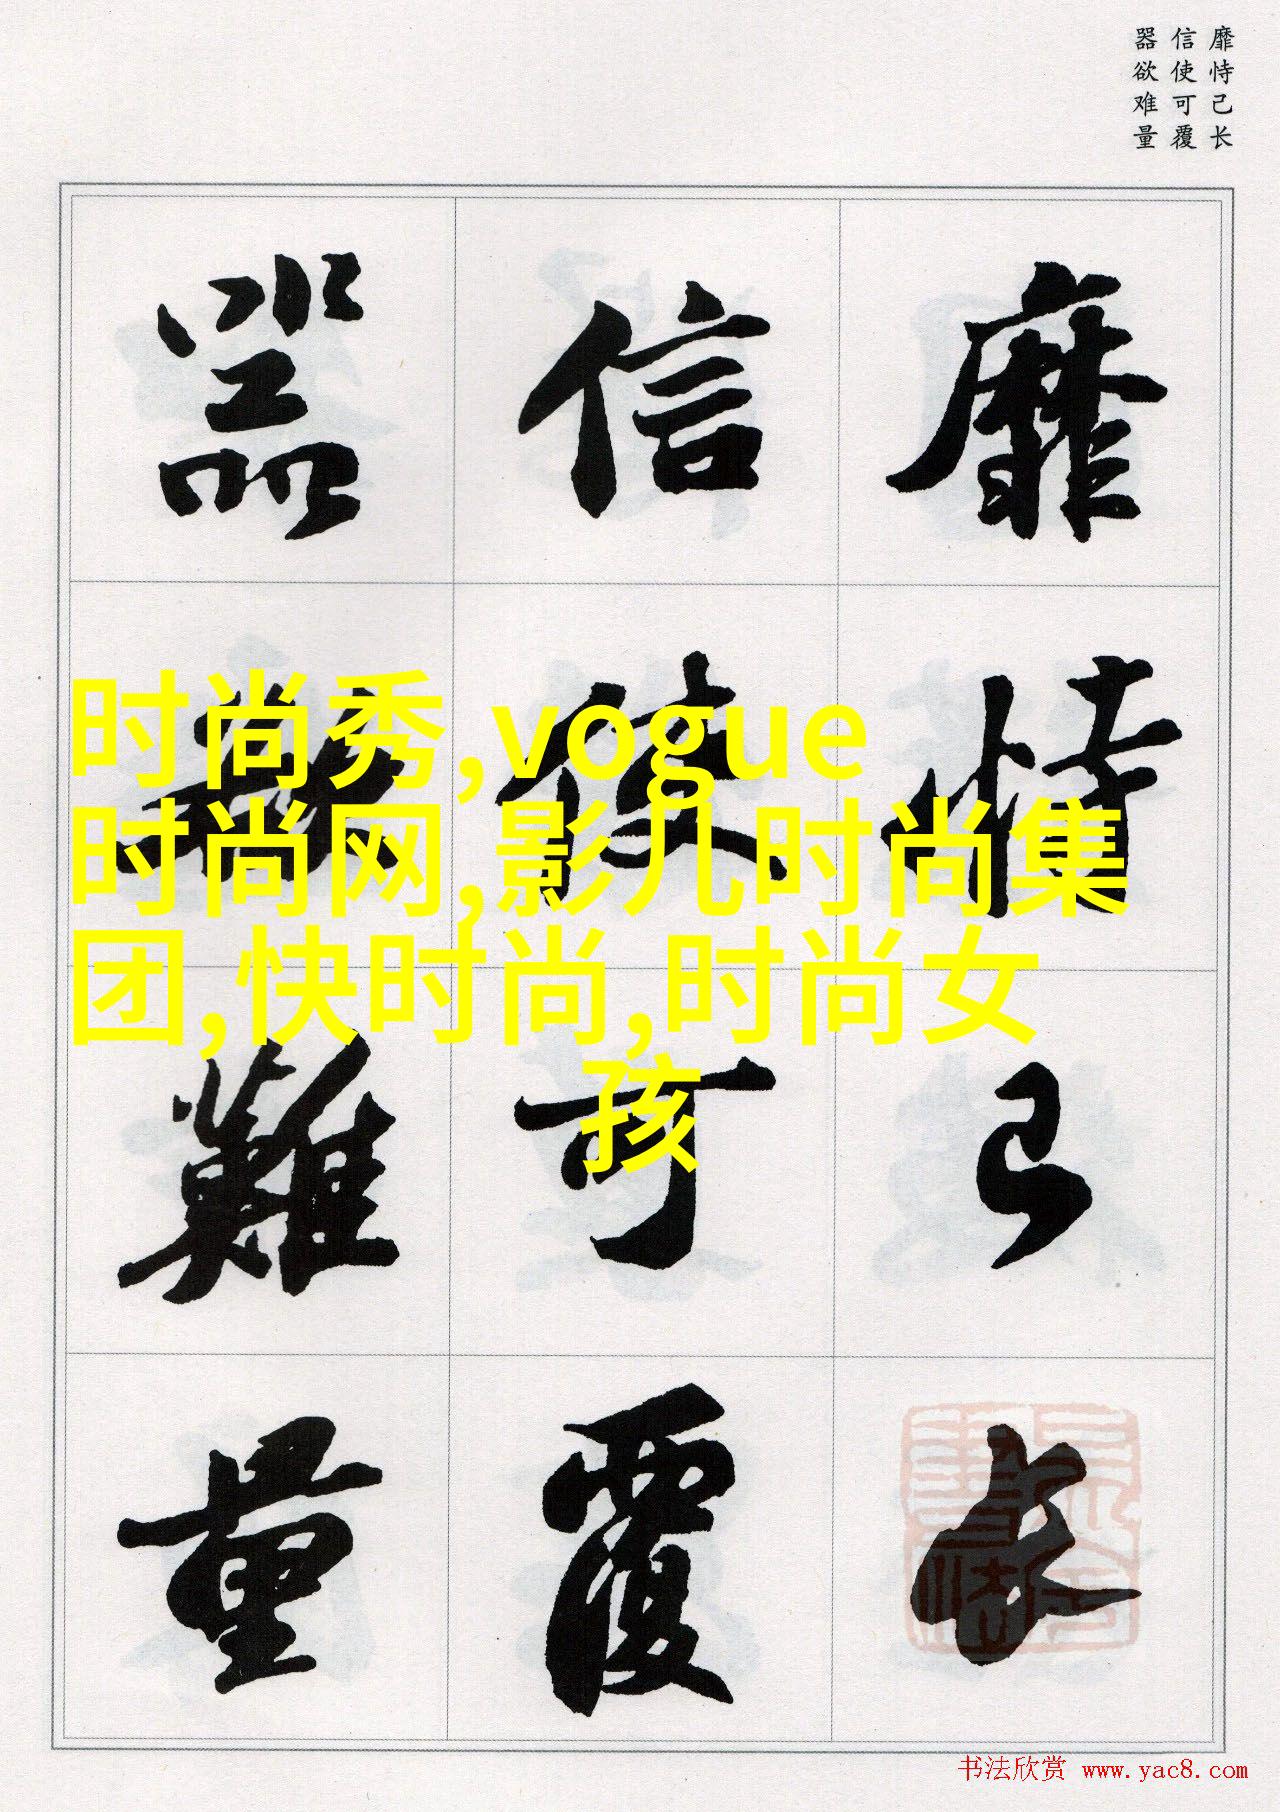 靡恃己长
信使可覆
器欲难量
靡恃己长
信使可覆
器欲難量
时尚秀,vogue
时尚网,影儿时尚集
团,快时尚,时尚女
孩
书法欣赏 www.yac8.com